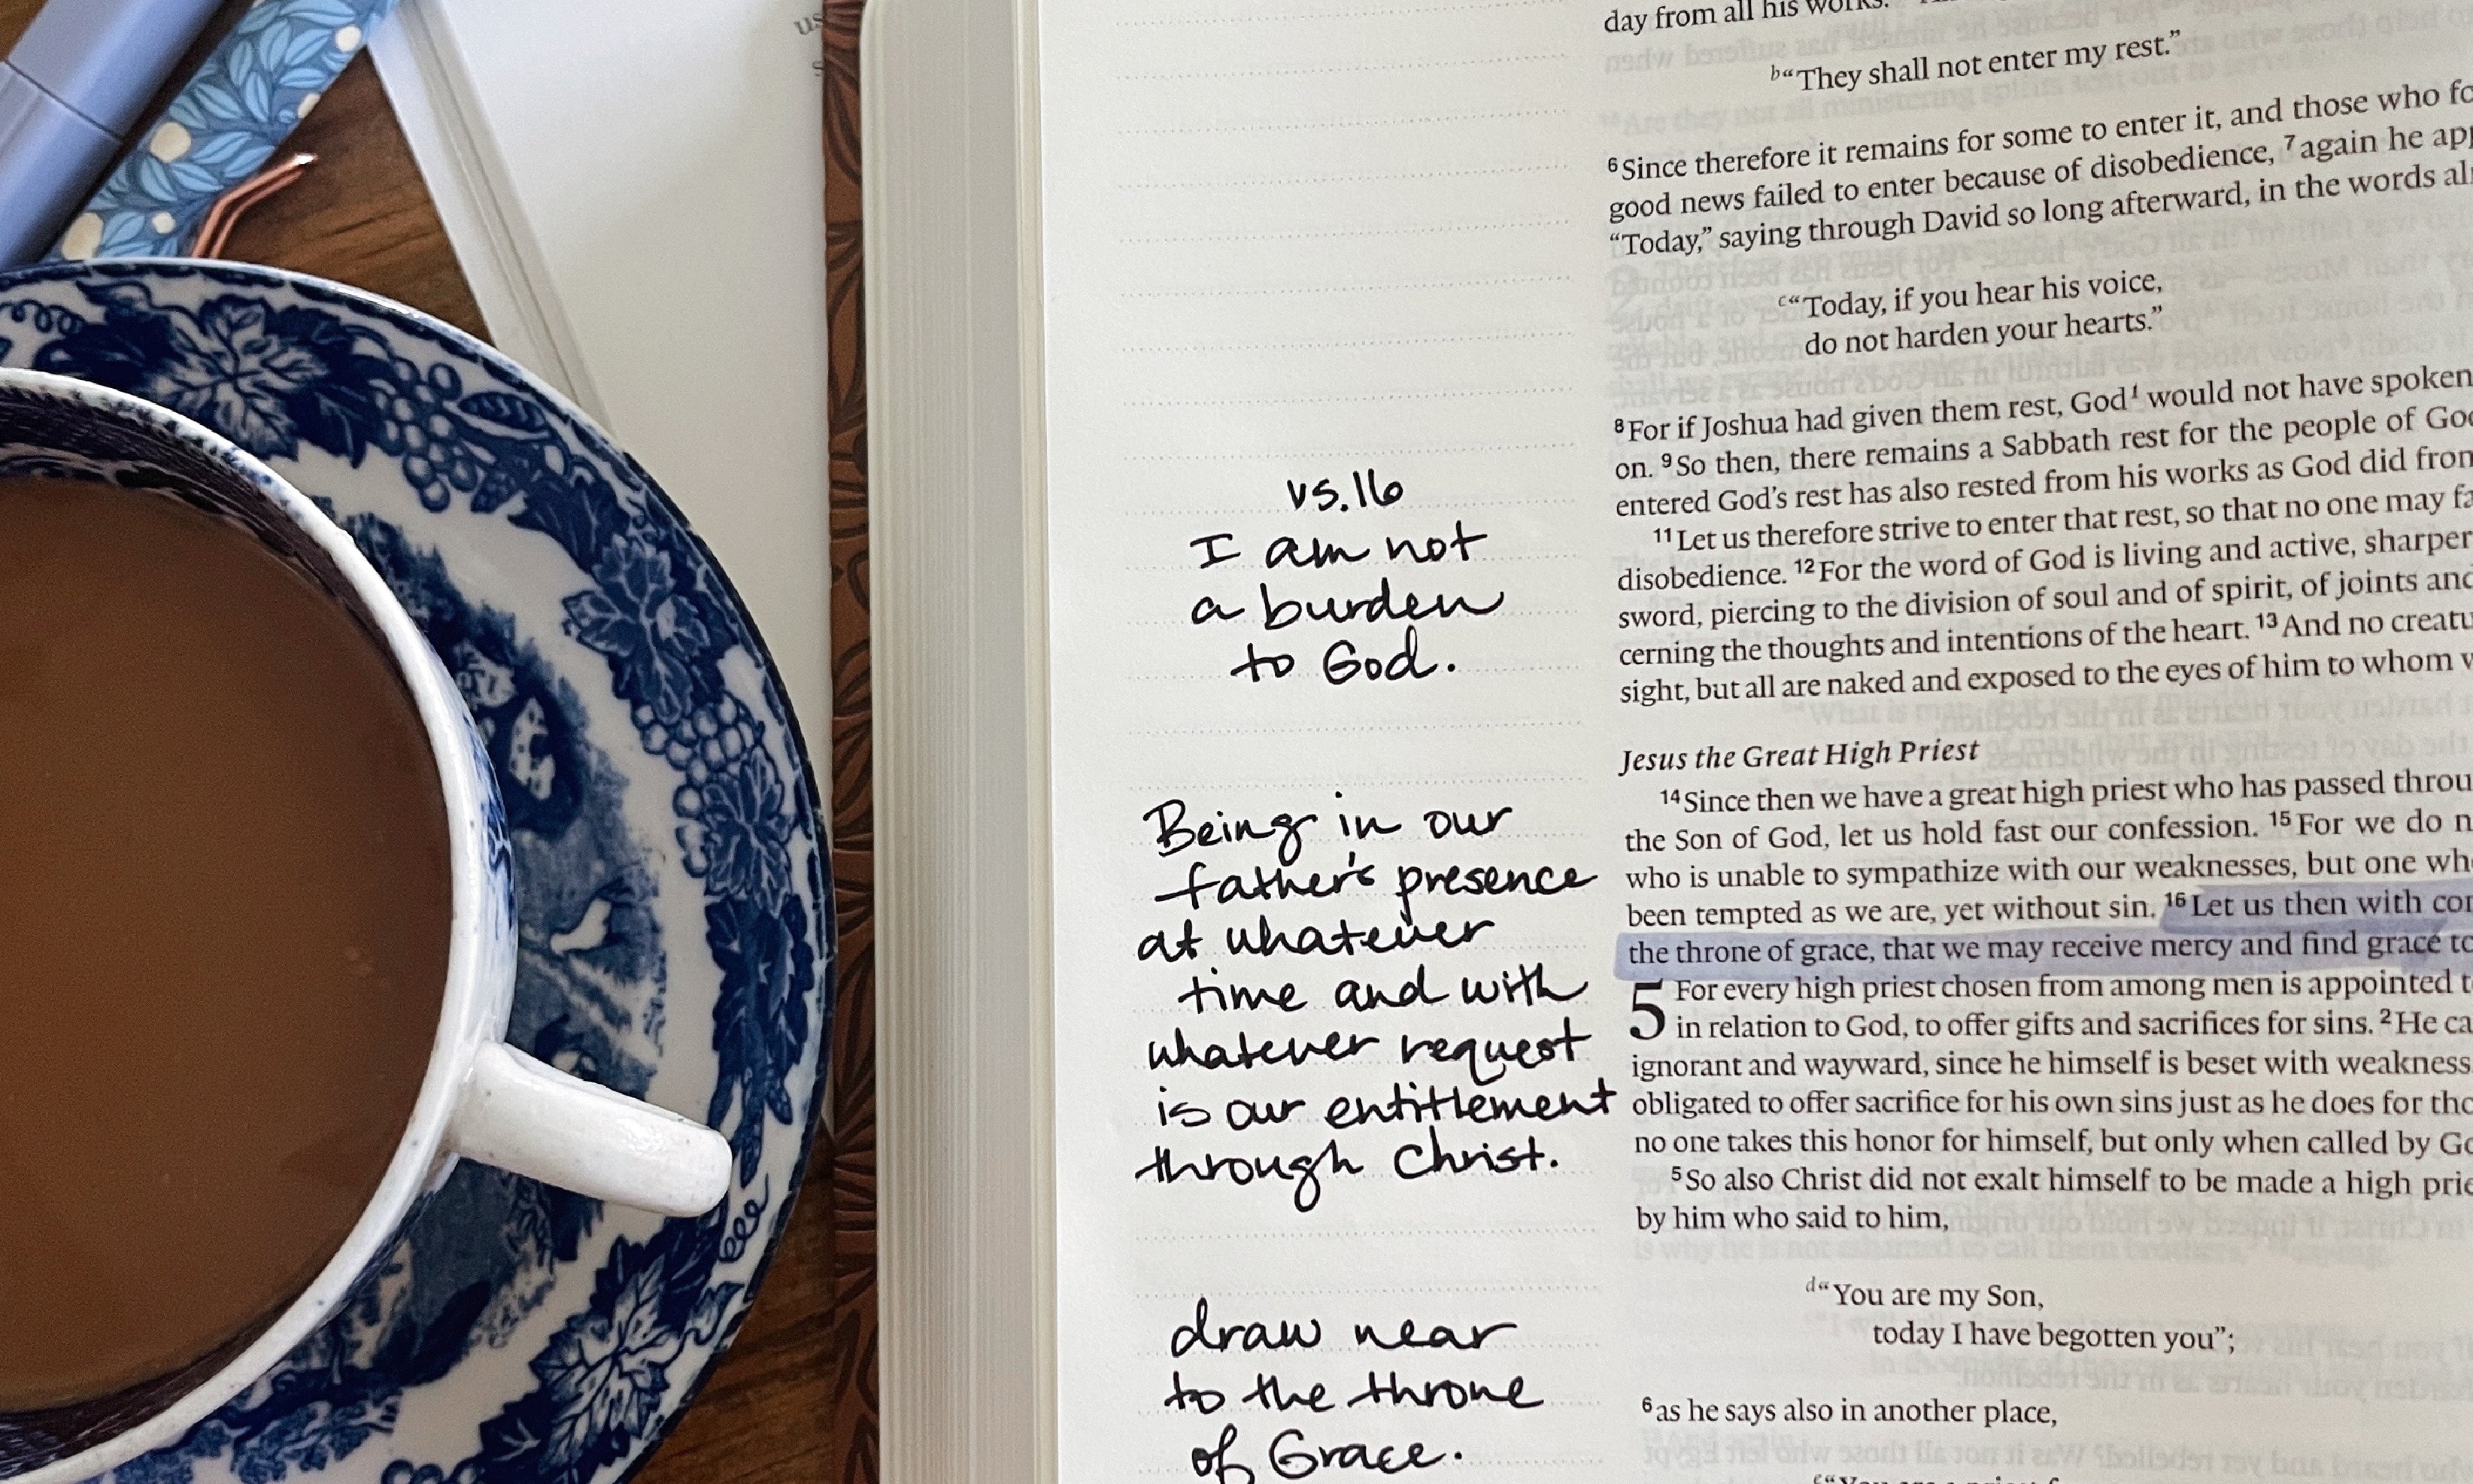 us
s
vs.16
I am not
a burden
to God.
Being in our
father's presence
at whatever
time and with
whatever request
is our entitlement
through Christ.
draw near
to the throne
of Grace.
day from all his works."
b“They shall not enter my rest.”
6 Since therefore it remains for some to enter it, and those who fo
good news failed to enter because of disobedience, 7 again he app
“Today,” saying through David so long afterward, in the words al
c“Today, if you hear his voice,
do not harden your hearts.”
8 For if Joshua had given them rest, God1 would not have spoken
on. 9 So then, there remains a Sabbath rest for the people of Go
entered God's rest has also rested from his works as God did from
11 Let us therefore strive to enter that rest, so that no one may fa
disobedience. 12 For the word of God is living and active, sharper
sword, piercing to the division of soul and of spirit, of joints and
cerning the thoughts and intentions of the heart. 13 And no creatu
sight, but all are naked and exposed to the eyes of him to whom w
Jesus the Great High Priest
14 Since then we have a great high priest who has passed throu
the Son of God, let us hold fast our confession. 15 For we do n
who is unable to sympathize with our weaknesses, but one wh
been tempted as we are, yet without sin. 16 Let us then with con
the throne of grace, that we may receive mercy and find grace to
5 For every high priest chosen from among men is appointed t
in relation to God, to offer gifts and sacrifices for sins. 2 He ca
ignorant and wayward, since he himself is beset with weakness
obligated to offer sacrifice for his own sins just as he does for tho
no one takes this honor for himself, but only when called by Go
5 So also Christ did not exalt himself to be made a high prie
by him who said to him,
d“You are my Son,
today I have begotten you”;
6 as he says also in another place,